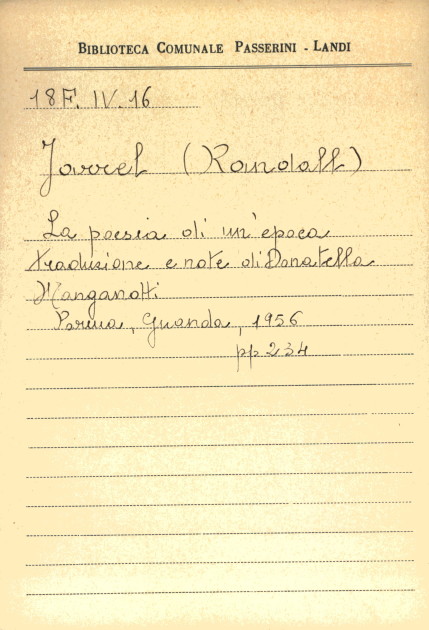 BIBLIOTECA COMUNALE PASSERINI - LANDI
18F. IV. 16
Jarrel (Randall)
La poesia di un'epoca
traduzione e note di Donatella
Manganotti
Parma, Guanda, 1956
pp 234